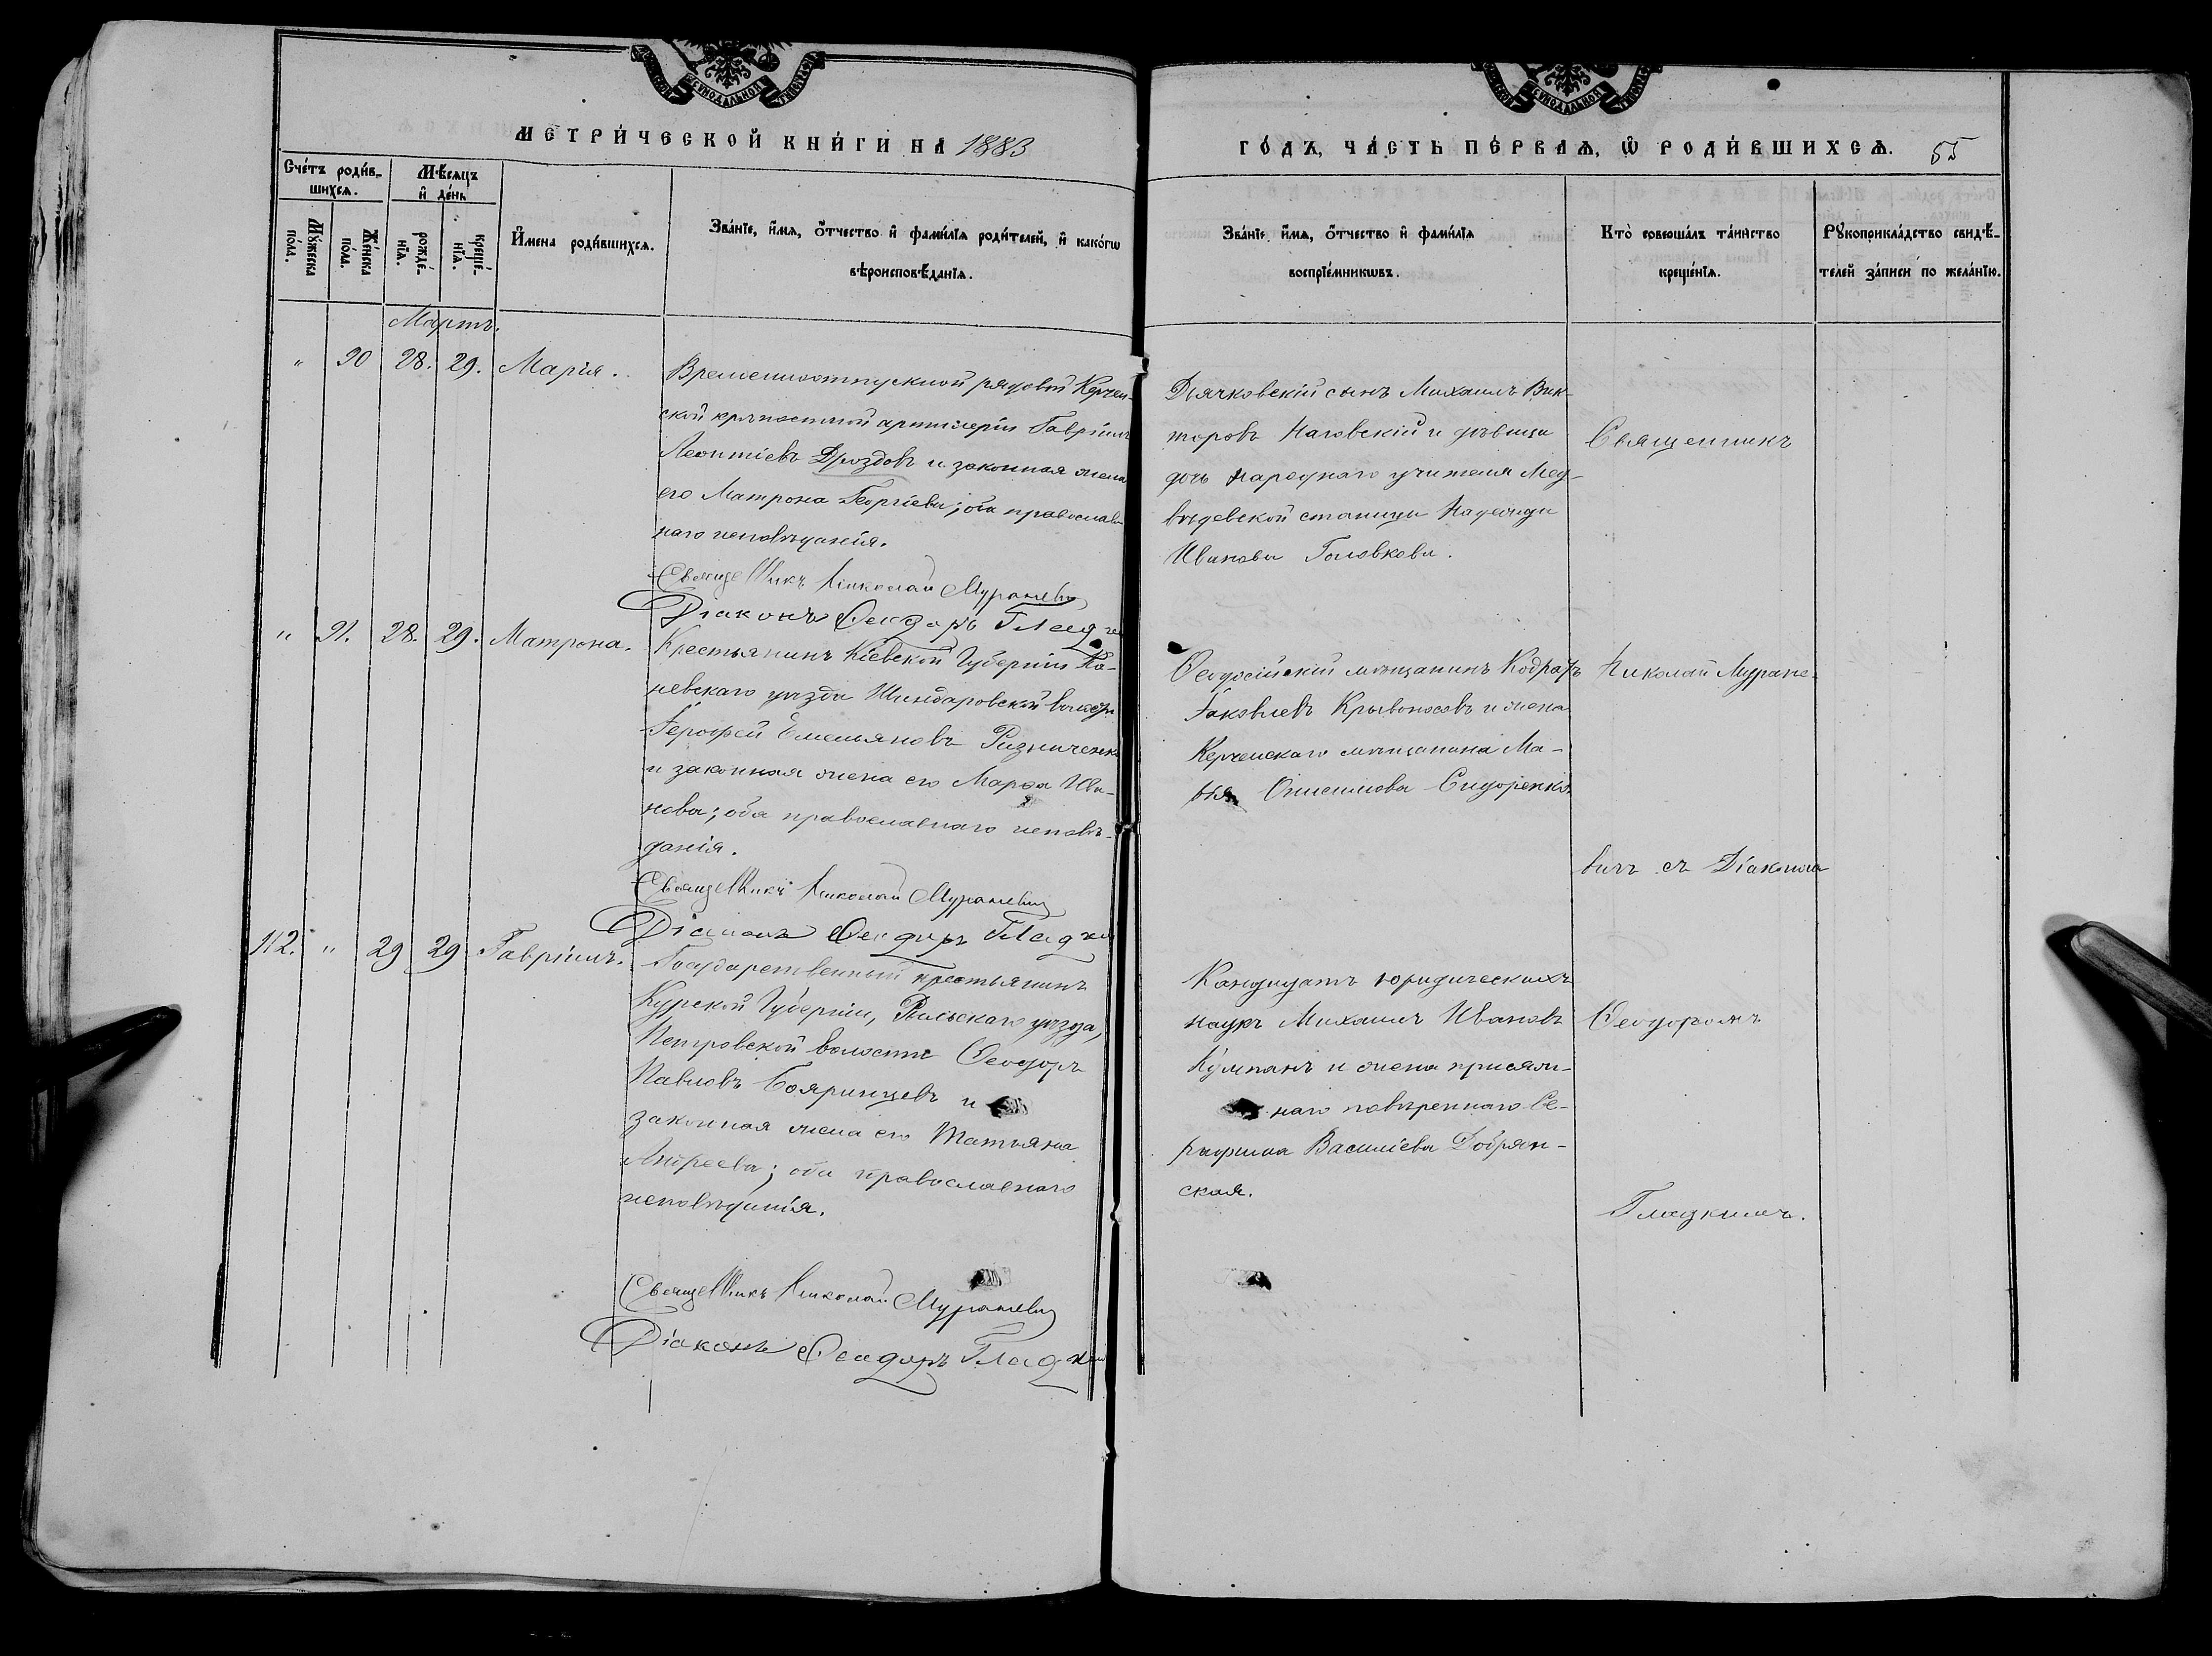 МЕТРИ́ЧЕСКОЙ КНИ́ГИ НА 1883
ГО́ДЪ, ЧА́СТЬ ПЕ́РВАѦ, Ѿ РОДИ́ВШИХСѦ. 55
Сче́тъ роди́в-
шихсѧ.
Мѣ́сѧцъ
и҆ де́нь
Мꙋ́жеска
по́ла.
Же́нска
по́ла.
рожде́-
нїѧ.
креще́-
нїѧ.
И҆мена роди́вшихсѧ.
Зва́нїе, и҆́мѧ, ѻ҆́тчество и҆ фами́лїѧ роди́телей, и҆ како́гѡ
вѣроисповѣ́данїѧ.
Зва́нїе и҆́мѧ, ѻ҆́тчество и҆ фами́лїѧ
воспрїе́мникѡвъ.
Кто̀ соверша́лъ та́инство
креще́нїѧ.
Рꙋкоприкла́дство свидѣ́-
телей за́писи по жела́нїю.
Мартъ.
" 90 28. 29. Марія.
Временноотпускной рядовой Керчен-
ской крѣпостной артиллеріи Гавріилъ
Леонтіевъ Дроздовъ и законная жена
его Матрона Георгіева; оба православ-
наго исповѣданія.
Священникъ Николай Мураневичъ
Діаконъ Ѳеодоръ Гладкій
Дьячковскій сынъ Михаилъ Вик-
торовъ Наговскій и дѣвица
дочь народнаго учителя Мед-
вѣдевской станицы Надежда
Иванова Головкова.
Священникъ
" 91. 28. 29. Матрона.
Крестьянинъ Кіевской Губерніи Ка-
невскаго уѣзда Шендаровской волости
Іерофей Емельяновъ Ризниченко
и законная жена его Марѳа Ива-
нова; оба православнаго исповѣ-
данія.
Священникъ Николай Мураневичъ
Діаконъ Ѳеодоръ Гладкій
Ѳеодосійскій мѣщанинъ Кодратъ
Іаковлевъ Кривоносовъ и жена
Керченскаго мѣщанина Ма-
рія Онисимова Сидоренко.
Николай Муране-
вичъ съ Діакономъ
112. " 29 29 Гавріилъ.
Государственный крестьянинъ
Курской Губерніи, Рыльскаго уѣзда,
Петровской волости Ѳеодоръ
Павловъ Бояринцевъ и
законная жена его Татьяна
Андреева; оба православнаго
исповѣданія.
Священникъ Николай Мураневичъ
Діаконъ Ѳеодоръ Гладкій
Кандидатъ юридическихъ
наукъ Михаилъ Ивановъ
Кумпанъ и жена присяж-
наго повѣреннаго Се-
рафима Василіева Добрян-
ская.
Ѳеодоромъ
Гладкимъ.